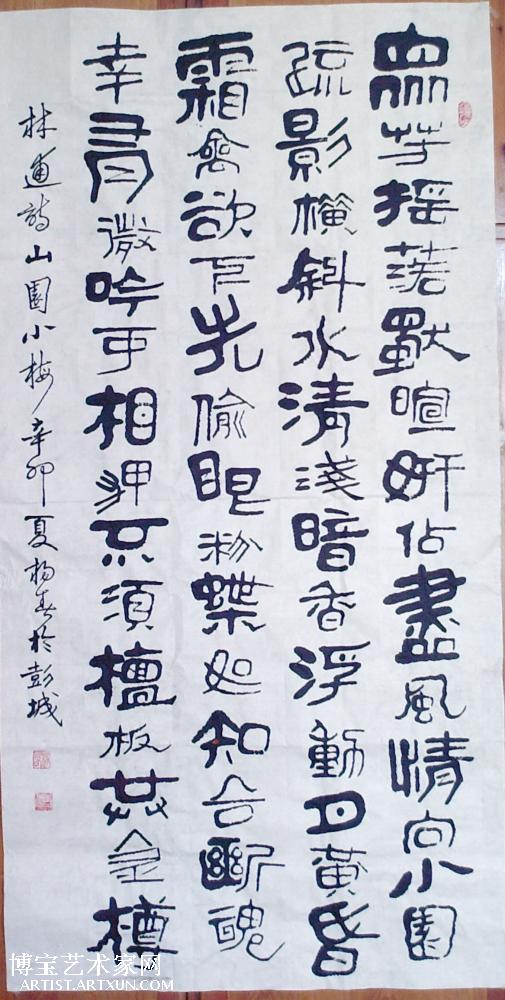 眾芳摇落獨暄妍佔盡風情向小園
疏影橫斜水清淺暗香浮動月黃昏
霜禽欲下先偷眼粉蝶如知合斷魂
幸有微吟可相狎不須檀板共金樽
林逋詩山園小梅辛卯夏楊春於彭城
博宝艺术家网
ARTIST.ARTXUN.COM